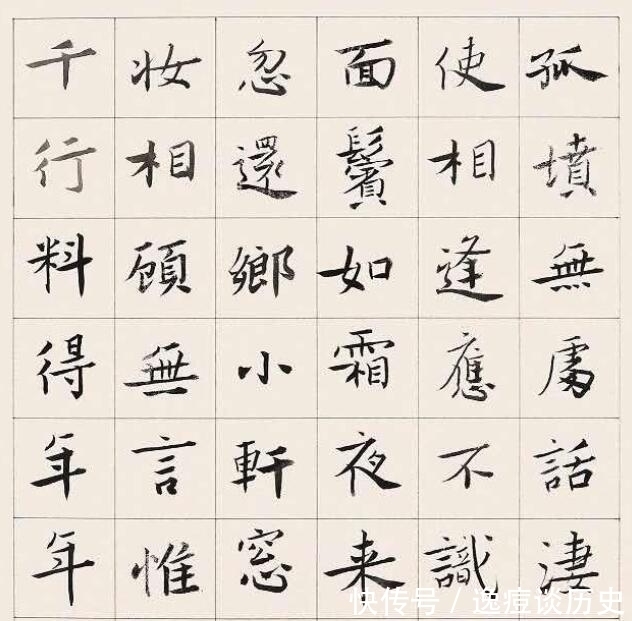 孤墳無處話淒
使相逢應不識
面鬢如霜夜来
忽還鄉小軒窓
妆相顧無言惟
千行料得年年
快传号 / 逸痘谈历史